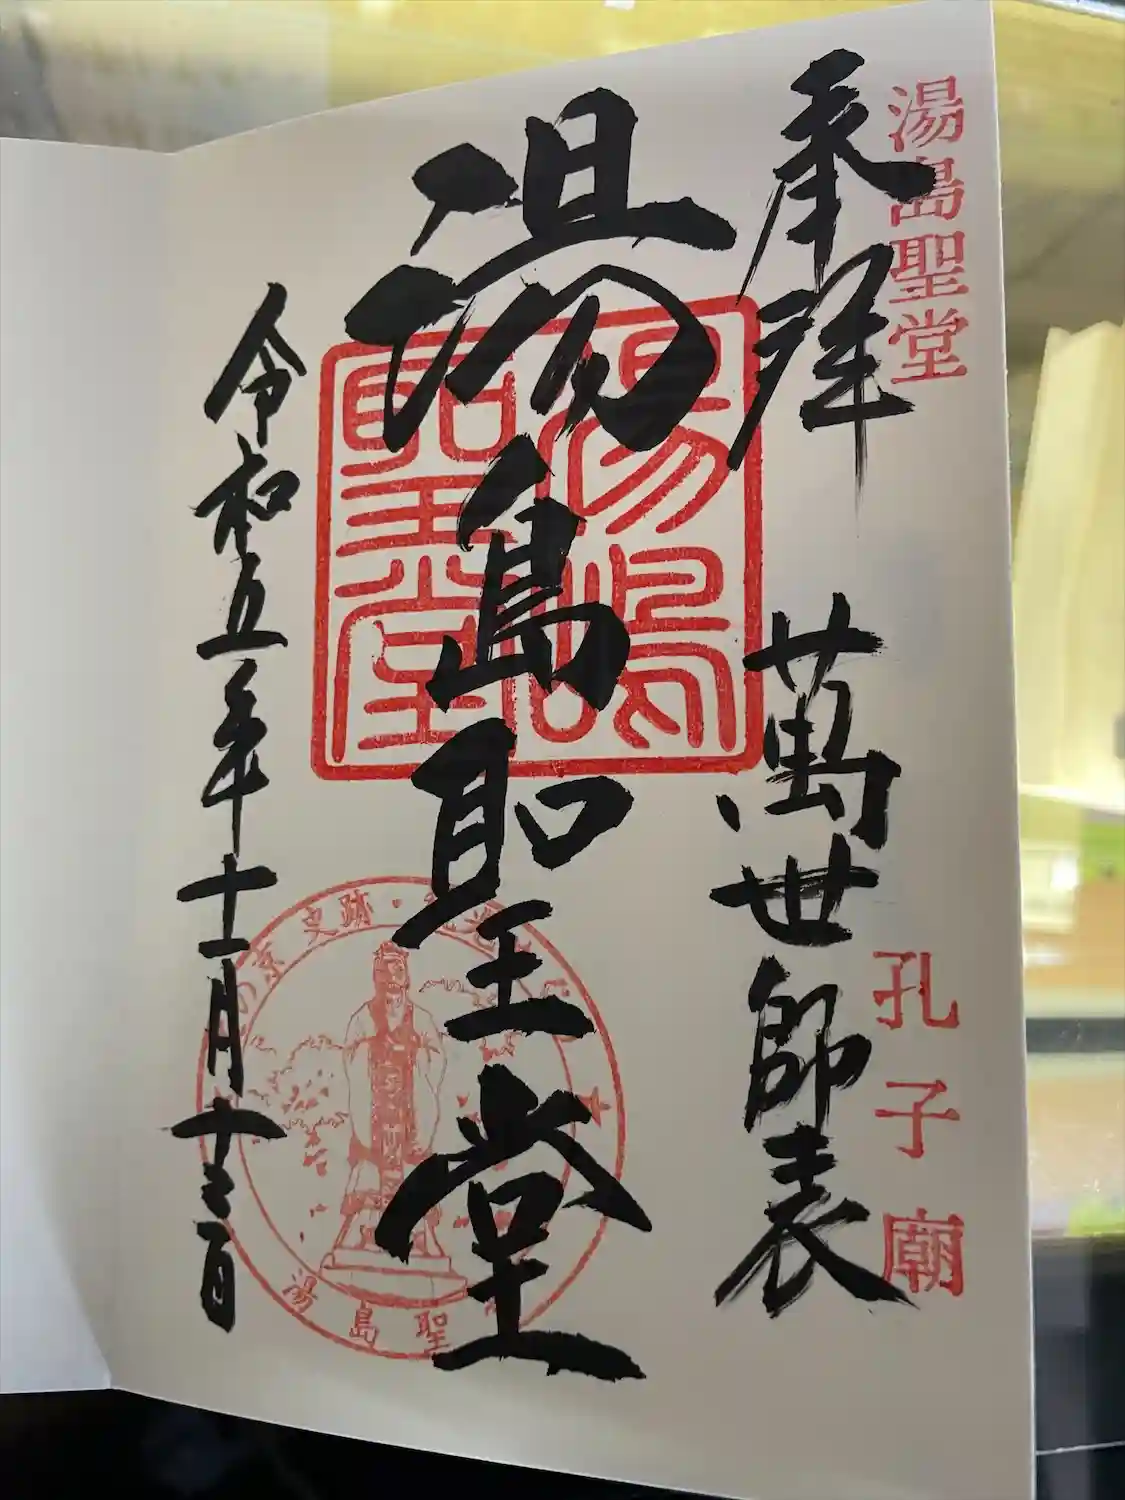 湯島聖堂
孔子廟
奉拝
萬世師表
湯島聖堂
湯嶋
聖堂
京 史跡・
湯島聖
令和五年十一月十三日